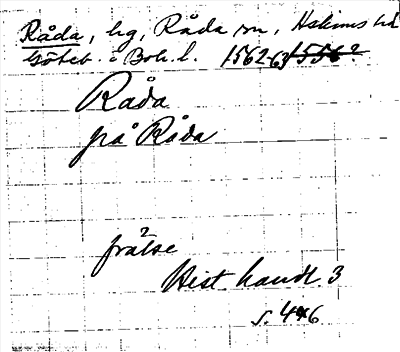 Råda, hg, Råda sn, Askims hd
Göteb. o Boh. l. 1562-63 1556?
Råda
på Råda
frälse
Hist handl 3
s. 446